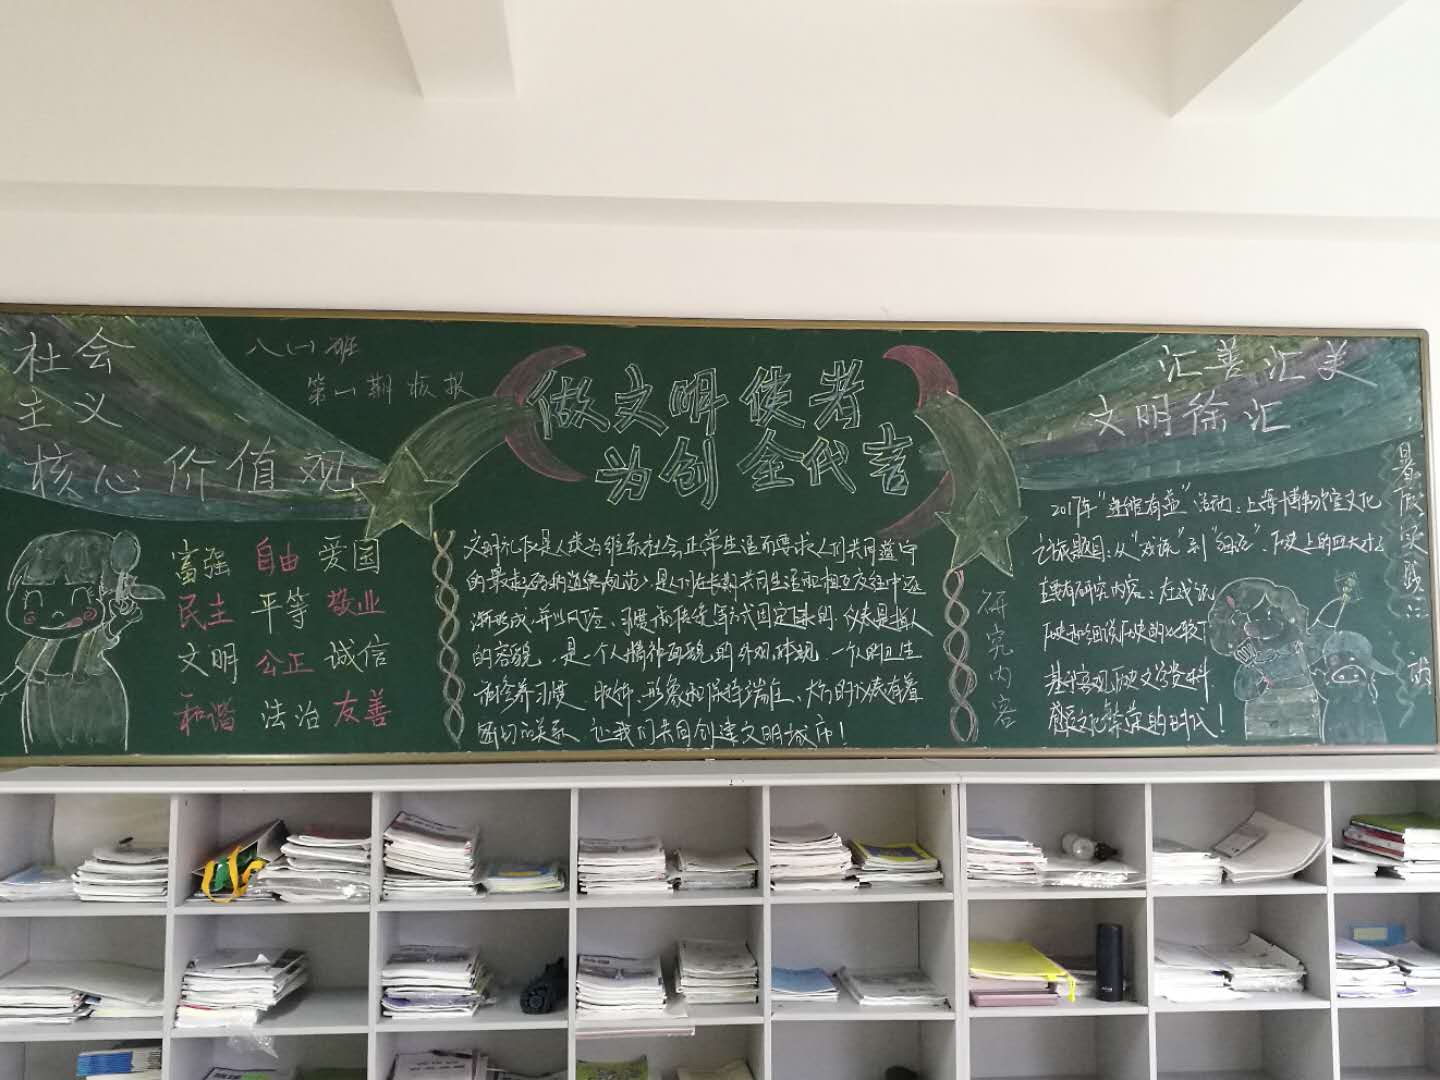 社会
主义
核心价值观
八(一)班
第一期板报
做文明使者
为创全代言
汇善汇美
文明徐汇
富强 自由 爱国
民主 平等 敬业
文明 公正 诚信
和谐 法治 友善
文明礼仪是人类为维系社会正常生活而要求人们共同遵守
的最起码的道德规范，是人们在长期共同生活和相互交往中逐
渐形成，并以风俗、习惯和传统等方式固定下来的。仪表是指人
的容貌，是一个人精神面貌的外观体现。一个人的卫生
和修养习惯、服饰、形象和保持端庄、大方的仪表有着
密切的关系。让我们共同创建文明城市！
研究内容
2017年 活动：上海博物馆文化
之旅题目：从"戏说"到"细说"，历史上的四大才子
主要有研究内容：在戏说
历史和细说历史的比较下
基于客观历史文学资料
感受文化繁荣的时代！
暑假实践活动